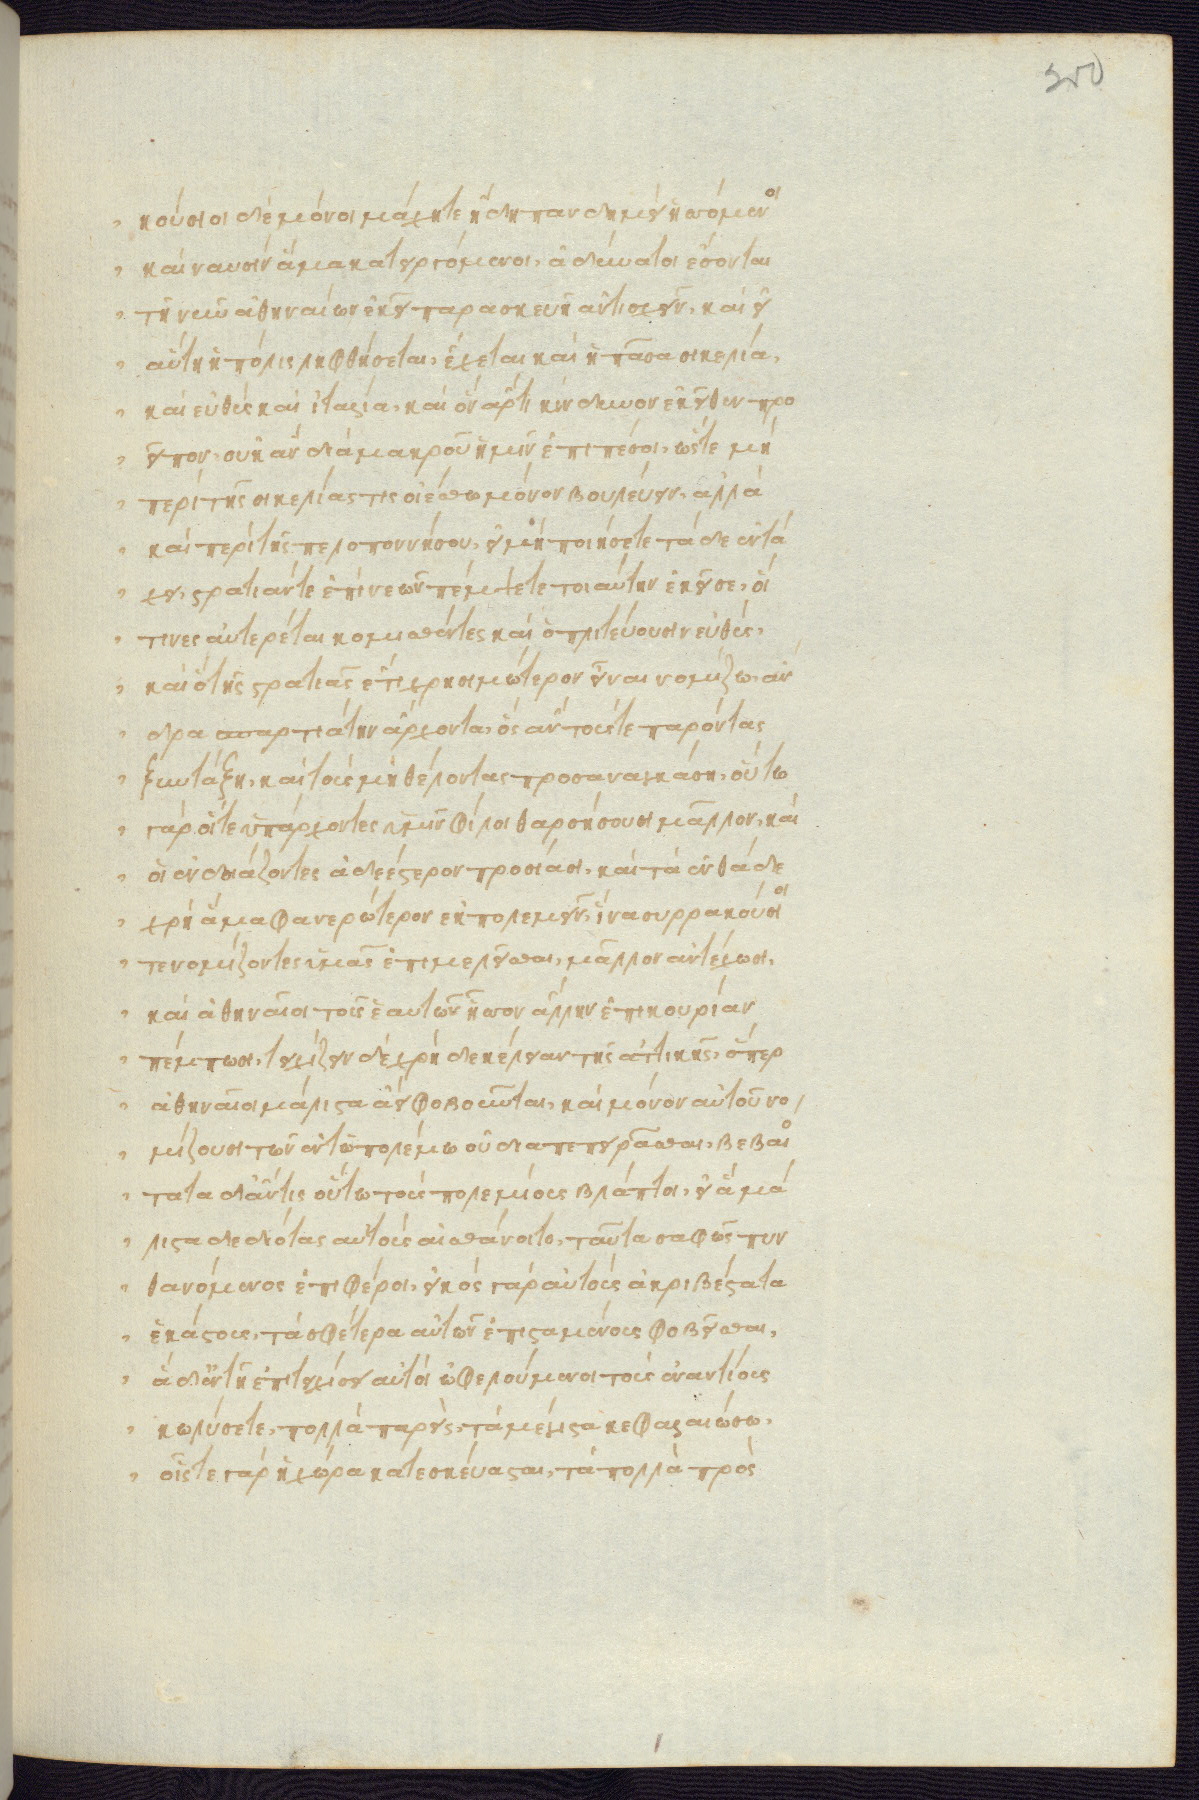 350
κούσιοι δὲ μόνοι μάχητε ἤδη πανδημεὶ ἡσσόμενοι
καὶ ναυσὶν ἅμα κατειργόμενοι, ἀδύνατοι ἔσονται
τῇ νῦν ἀθηναίων ἐκεῖ παρασκευῇ ἀντισχεῖν, καὶ εἰ
αὕτη ἡ πόλις ληφθήσεται, ἔχεται καὶ ἡ πᾶσα σικελία,
καὶ εὐθὺς καὶ ἰταλία, καὶ ὃν ἄρτι κίνδυνον ἐκεῖθεν προ
εῖπον, οὐκ ἂν διὰ μακροῦ ἡμῖν ἐπιπέσοι, ὥστε μὴ
περὶ τῆς σικελίας τις οἰέσθω μόνον βουλεύειν, ἀλλὰ
καὶ περὶ τῆς πελοποννήσου, εἰ μὴ ποιήσετε τάδε ἐν τά
χει, στρατιάν τε ἐπὶ νεῶν πέμψετε τοιαύτην ἐκεῖσε, οἵ
τινες αὐτερέται κομισθέντες καὶ ὁπλιτεύσουσιν εὐθὺς,
καὶ ὃ τῆς στρατιᾶς ἔτι χρησιμώτερον εἶναι νομίζω, ἄν
δρα σπαρτιάτην ἄρχοντα, ὡς ἂν τούς τε παρόντας
ξυντάξῃ, καὶ τοὺς μὴ θέλοντας προσαναγκάσῃ, οὕτω
γὰρ οἵ τε ὑπάρχοντες ὑμῖν φίλοι θαρσήσουσι μᾶλλον, καὶ
οἱ ἐνδοιάζοντες ἀδεέστερον προσίασι, καὶ τὰ ἐνθάδε
χρὴ ἅμα φανερώτερον ἐκπολεμεῖν, ἵνα συρρακούσιοί
τε νομίζοντες ὑμᾶς ἐπιμελεῖσθαι, μᾶλλον ἀντέχωσι,
καὶ ἀθηναῖοι τοῖς ἑαυτῶν ἧσσον ἄλλην ἐπικουρίαν
πέμπωσι, τειχίζειν δὲ χρὴ δεκέλειαν τῆς ἀττικῆς, ὅπερ
ἀθηναῖοι μάλιστα ἀεὶ φοβοῦνται, καὶ μόνον αὐτοῦ νο/
μίζουσι τῶν ἐν τῷ πολέμῳ οὐ διαπεπειρᾶσθαι, βεβαιό
τατα δ' ἄν τις οὕτω τοὺς πολεμίους βλάπτοι, εἰ ἃ μά
λιστα δεδιότας αὐτοὺς αἰσθάνοιτο, ταῦτα σαφῶς πυν
θανόμενος ἐπιφέροι, εἰκὸς γὰρ αὐτοὺς ἀκριβέστατα
ἑκάστους, τὰ σφέτερα αὐτῶν ἐπισταμένους φοβεῖσθαι,
ἃ δ' ἐν τῇ ἐπιτειχίσει αὐτοὶ ὠφελούμενοι τοὺς ἐναντίους
κωλύσετε, πολλὰ παρεὶς, τὰ μέγιστα κεφαλαιώσω,
οἷς τε γὰρ ἡ χώρα κατεσκεύασται, τὰ πολλὰ πρὸς